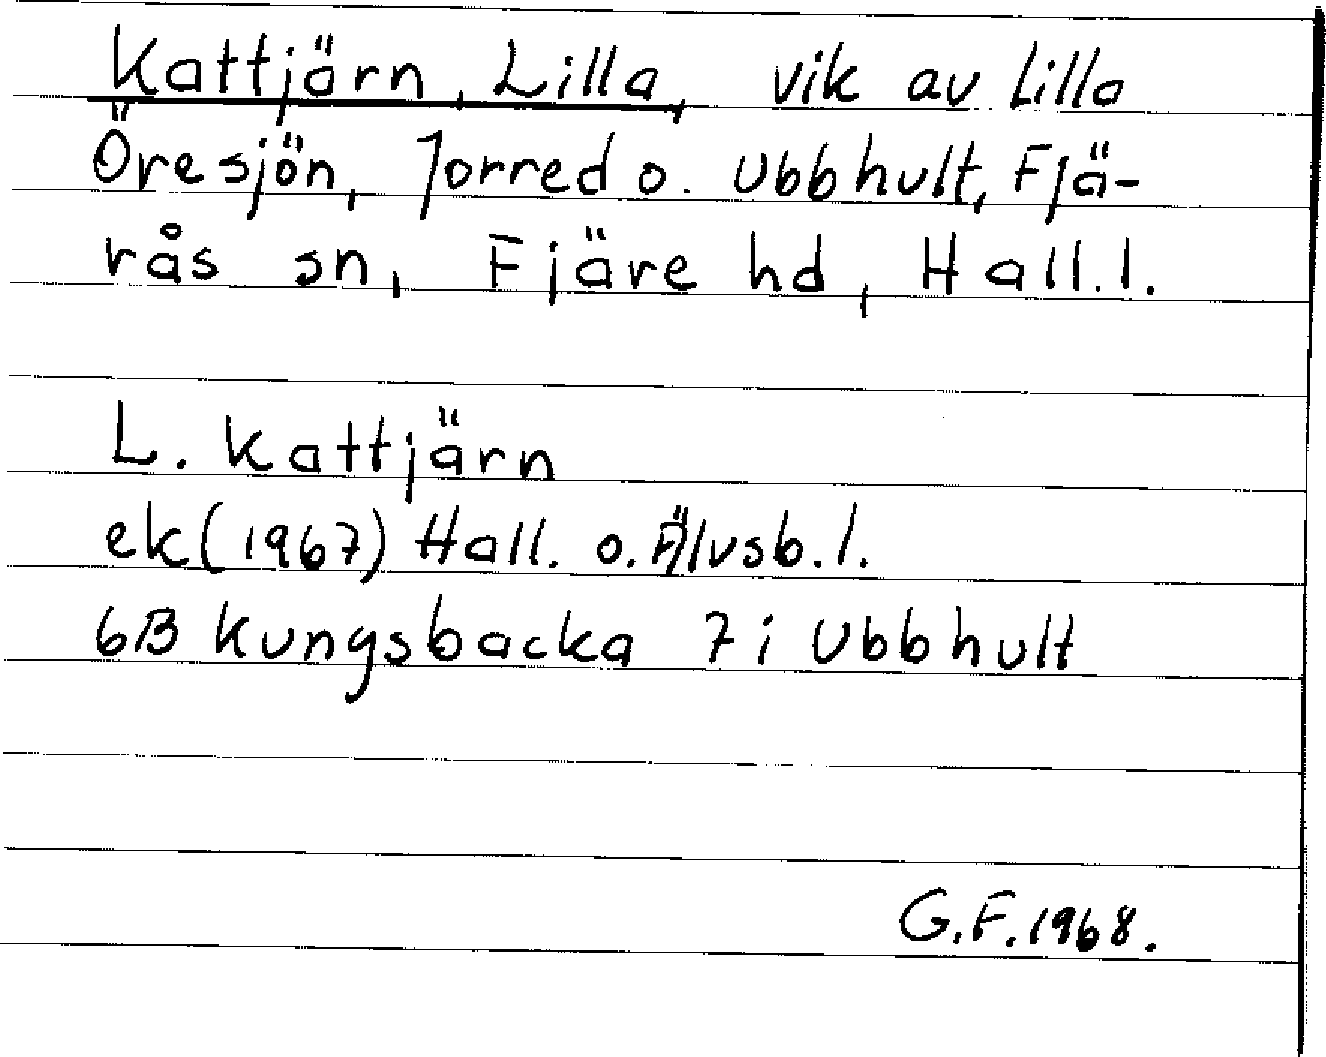 Kattjärn, Lilla, vik av Lilla
Öresjön, Jorred o. Ubbhult, Fjä-
rås sn, Fjäre hd, Hall.l.
L. Kattjärn
ek(1967) Hall. o. Älvsb.l.
6B Kungsbacka 7i Ubbhult
G.F.1968.